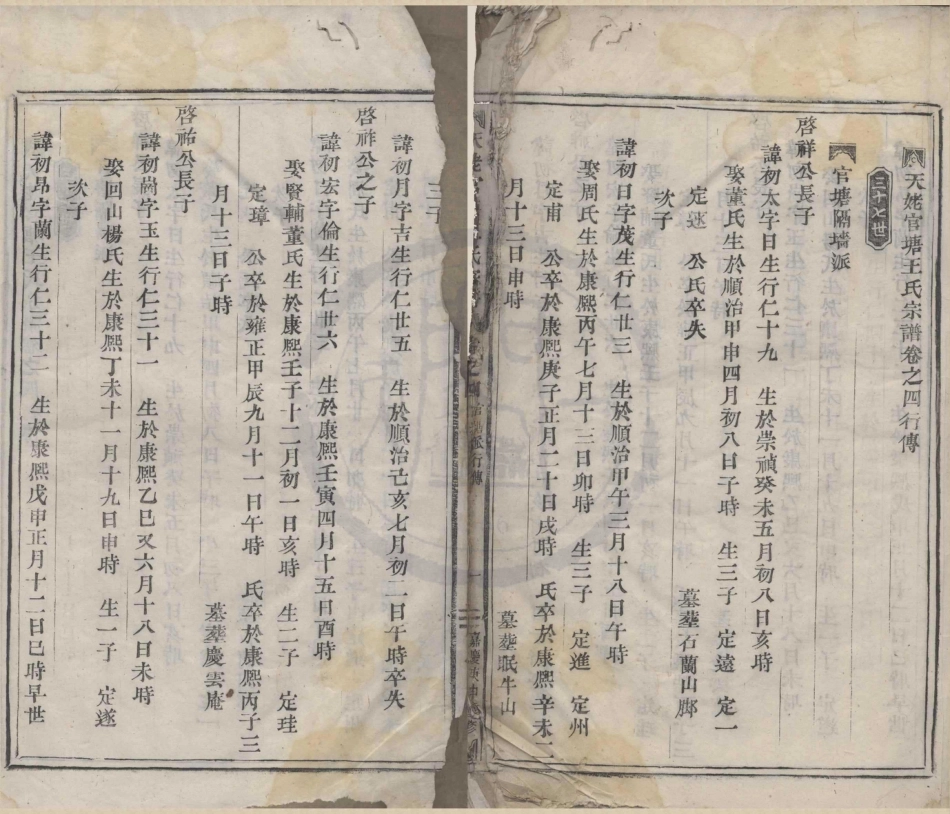 天姥官塘王氏宗譜卷之四行傳
三十七世
官塘隔墻派
啓祥公長子
諱初太字日生行仁十九 生於崇禎癸未五月初八日亥時
娶董氏生於順治甲申四月初八日子時 生三子 定遠 定一
定逑 公氏卒失 墓塟石蘭山脚
次子
諱初日字茂生行仁廿三 生於順治甲午三月十八日午時
娶周氏生於康熙丙午七月十三日卯時 生三子 定進 定州
定甫 公卒於康熙庚子正月二十日戌時 氏卒於康熙辛未二
月十三日申時 墓塟眠牛山
三子
諱初月字吉生行仁廿五 生於順治己亥七月初二日午時卒失
啓祥公之子
諱初宏字倫生行仁廿六 生於康熙壬寅四月十五日酉時
娶賢輔董氏生於康熙壬子十二月初一日亥時 生二子 定珪
定璋 公卒於雍正甲辰九月十一日午時 氏卒於康熙丙子三
月十三日子時 墓塟慶雲庵
啓祐公長子
諱初崗字玉生行仁三十一 生於康熙乙巳又六月十八日未時
娶回山楊氏生於康熙丁未十一月十九日申時 生一子 定遂
次子
諱初昂字蘭生行仁三十二 生於康熙戊申正月十二日巳時早世